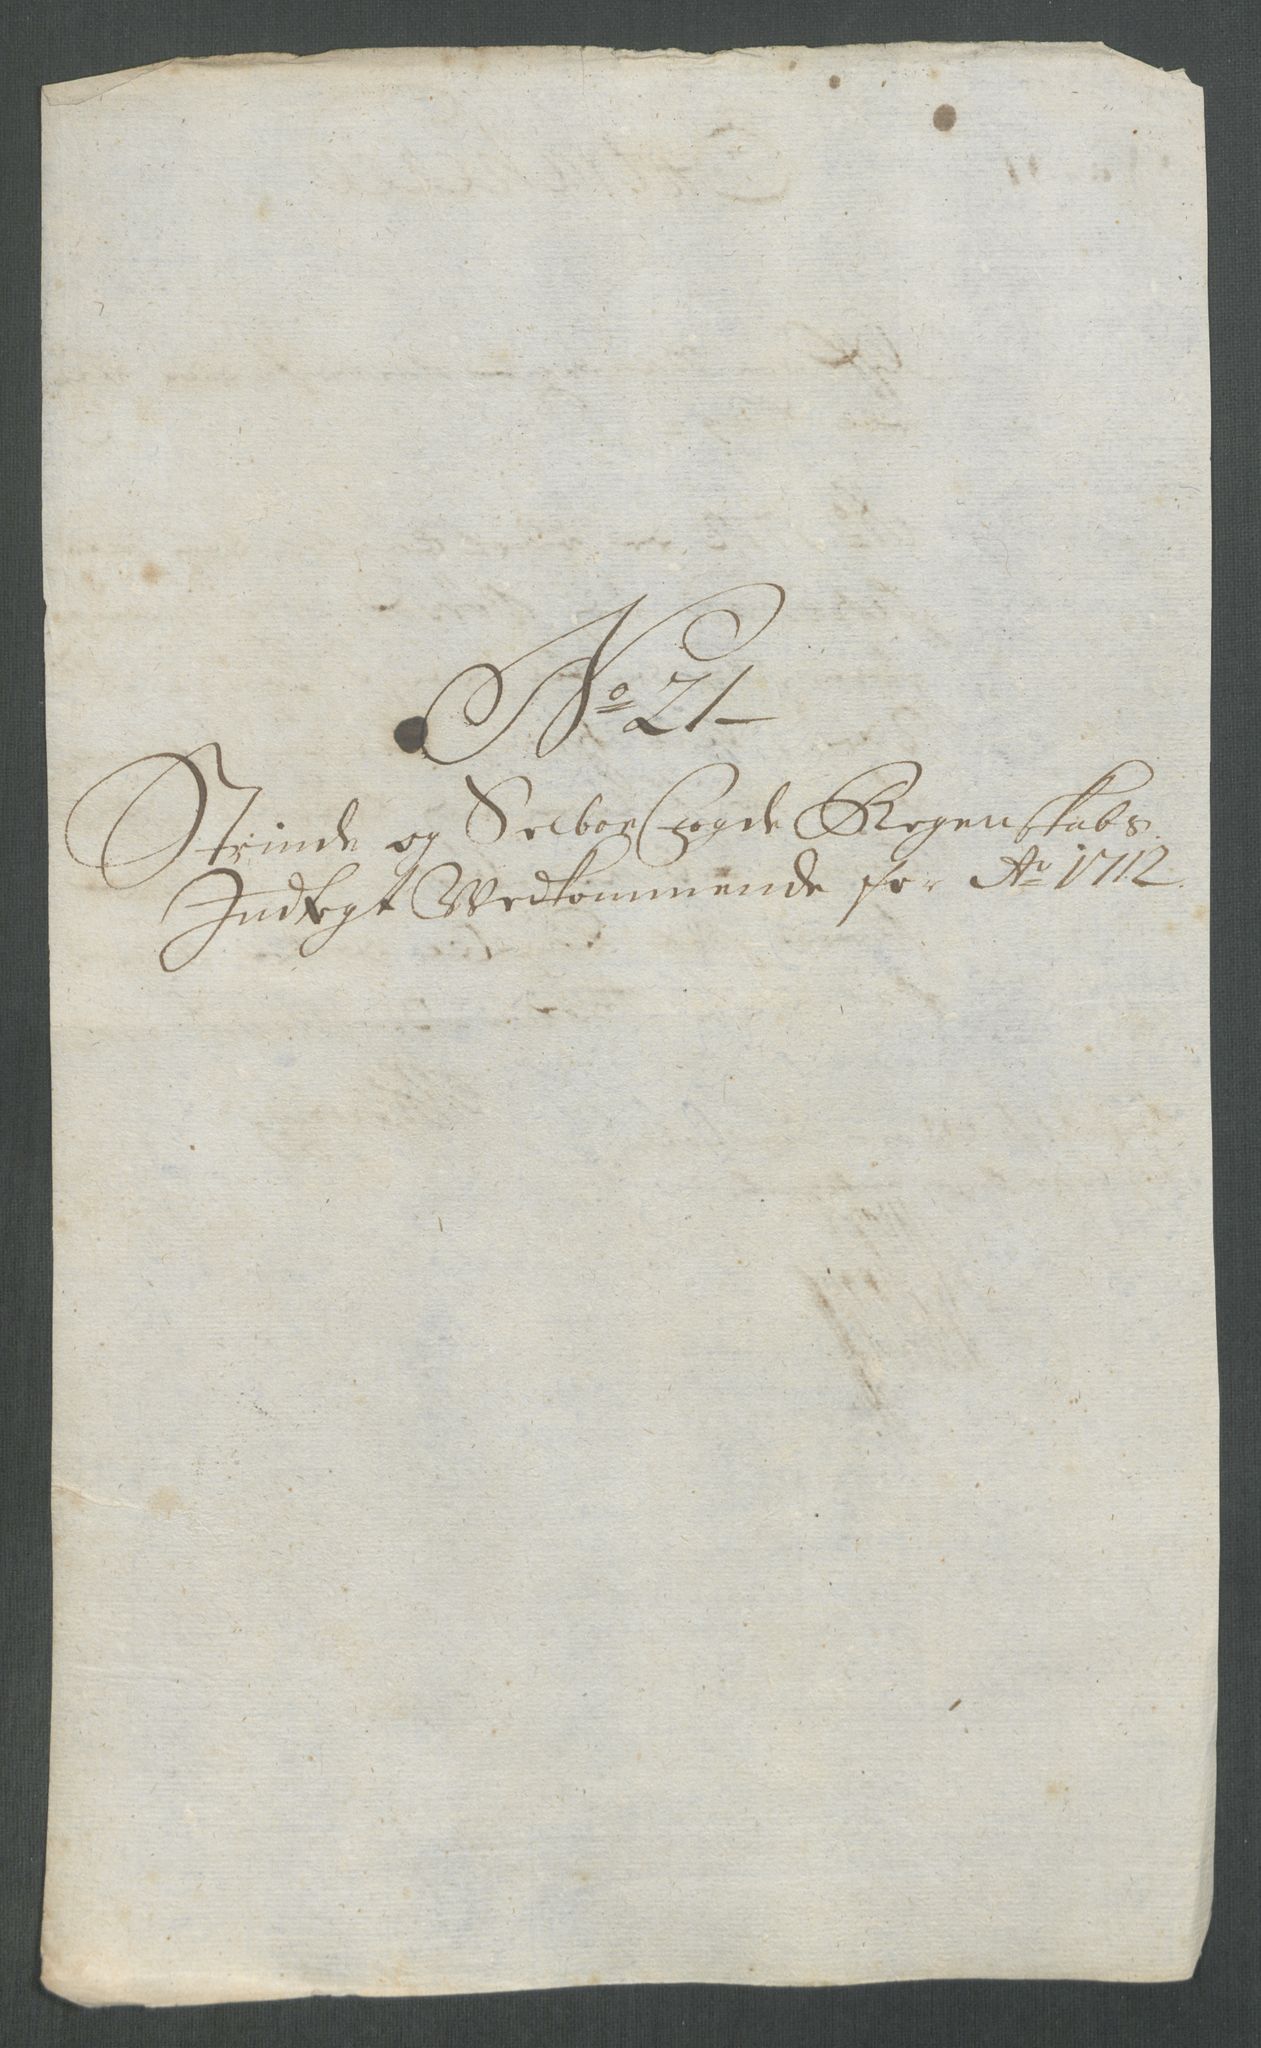 No 21
Strinde og Selboe Fogde Regenskabs
Indtegt Vedkommende for Ao 1712.